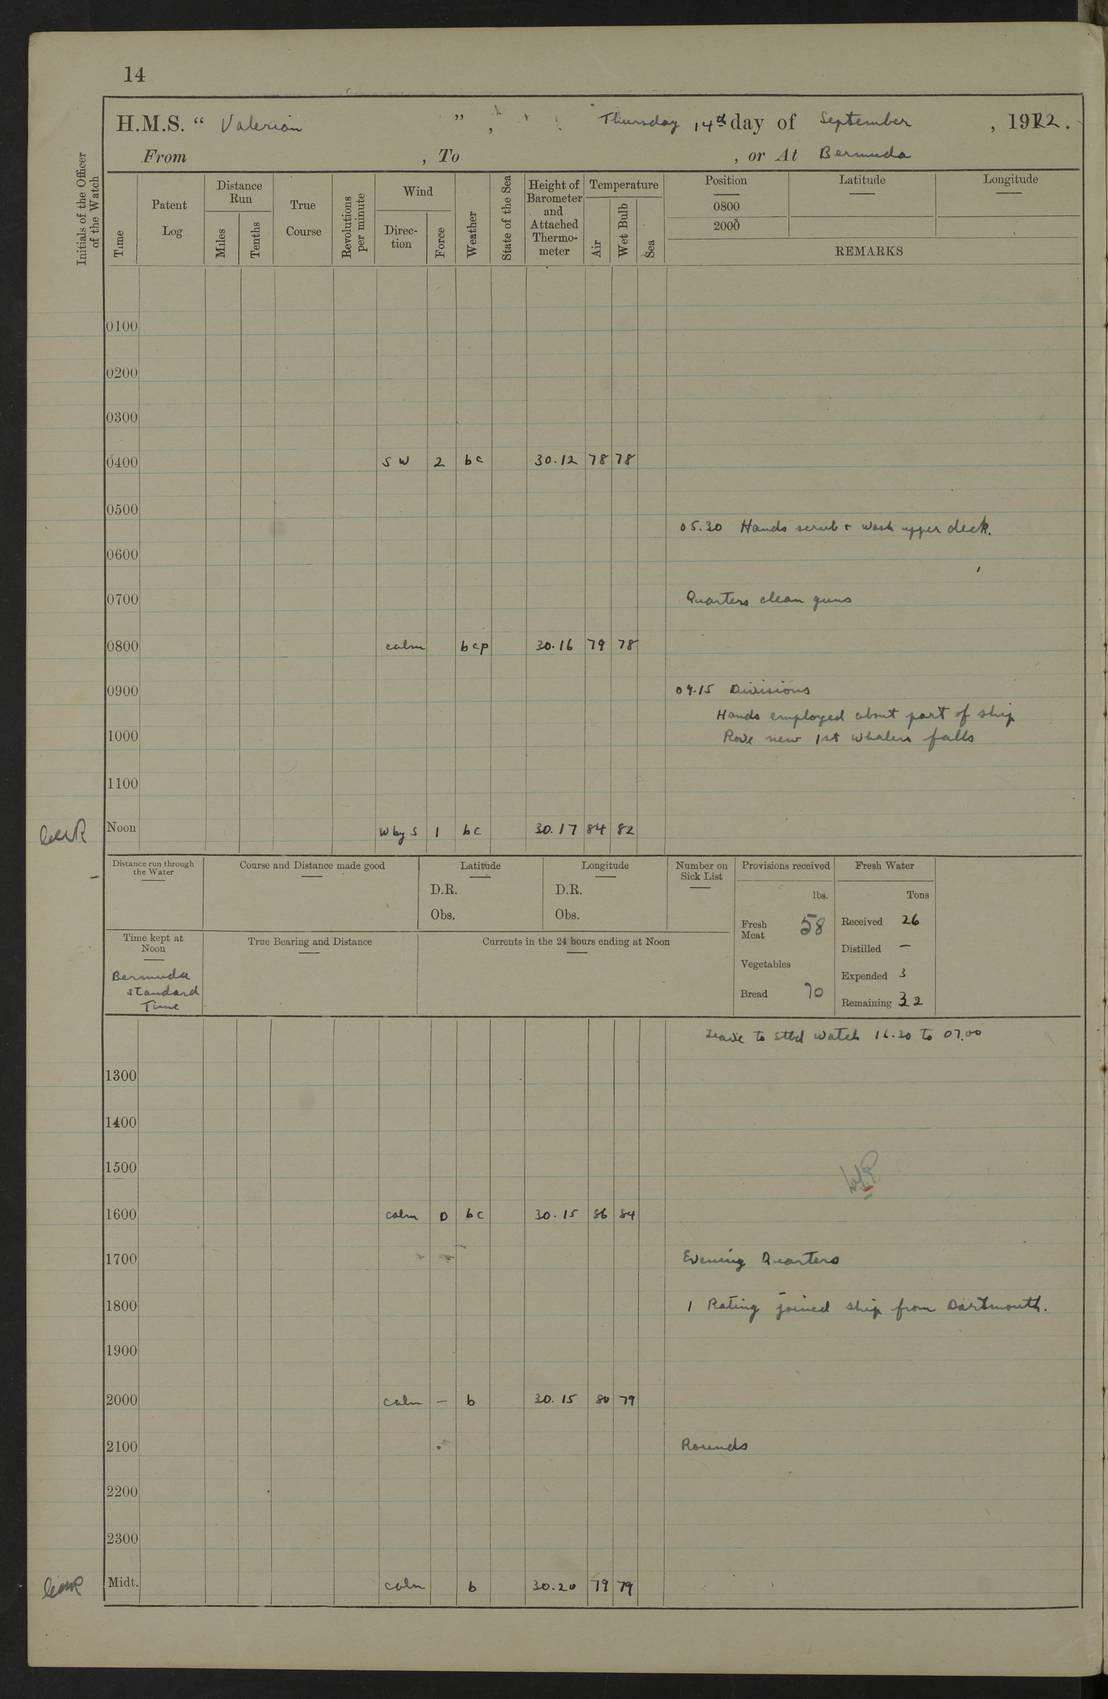 14
H.M.S. “ Valerian ” , Thursday 14th day of September , 1922.
From , To , or At Bermuda
Initials of the Officer of the Watch
Time
Patent Log
Distance Run
Miles
Tenths
True Course
Revolutions per minute
Wind
Direction
Force
Weather
State of the Sea
Height of Barometer and Attached Thermometer
Temperature
Air
Wet Bulb
Sea
Position Latitude Longitude
0800
2000
REMARKS
0100
0200
0300
0400 SW 2 bc 30.12 78 78
0500
05.30 Hands scrub & wash upper deck.
0600
0700 Quarters clean guns
0800 calm bcp 30.16 79 78
0900 09.15 Divisions
Hands employed about part of ship
1000 Rove new 1st whalers falls
1100
Noon W by S 1 bc 30.17 84 82
Distance run through the Water
Course and Distance made good
Latitude
D.R.
Obs.
Longitude
D.R.
Obs.
Number on Sick List
Provisions received
lbs.
Fresh Meat 58
Vegetables
Bread 70
Fresh Water
Tons
Received 26
Distilled —
Expended 3
Remaining 32
Time kept at Noon
Bermuda
standard
Time
True Bearing and Distance
Currents in the 24 hours ending at Noon
Leave to Stbd Watch 16.30 to 07.00
1300
1400
1500
1600 calm 0 bc 30.15 86 84
1700 Evening Quarters
1800 1 Rating joined ship from Dartmouth.
1900
2000 calm — b 30.15 80 79
2100 Rounds
2200
2300
Midt. calm b 30.20 79 79